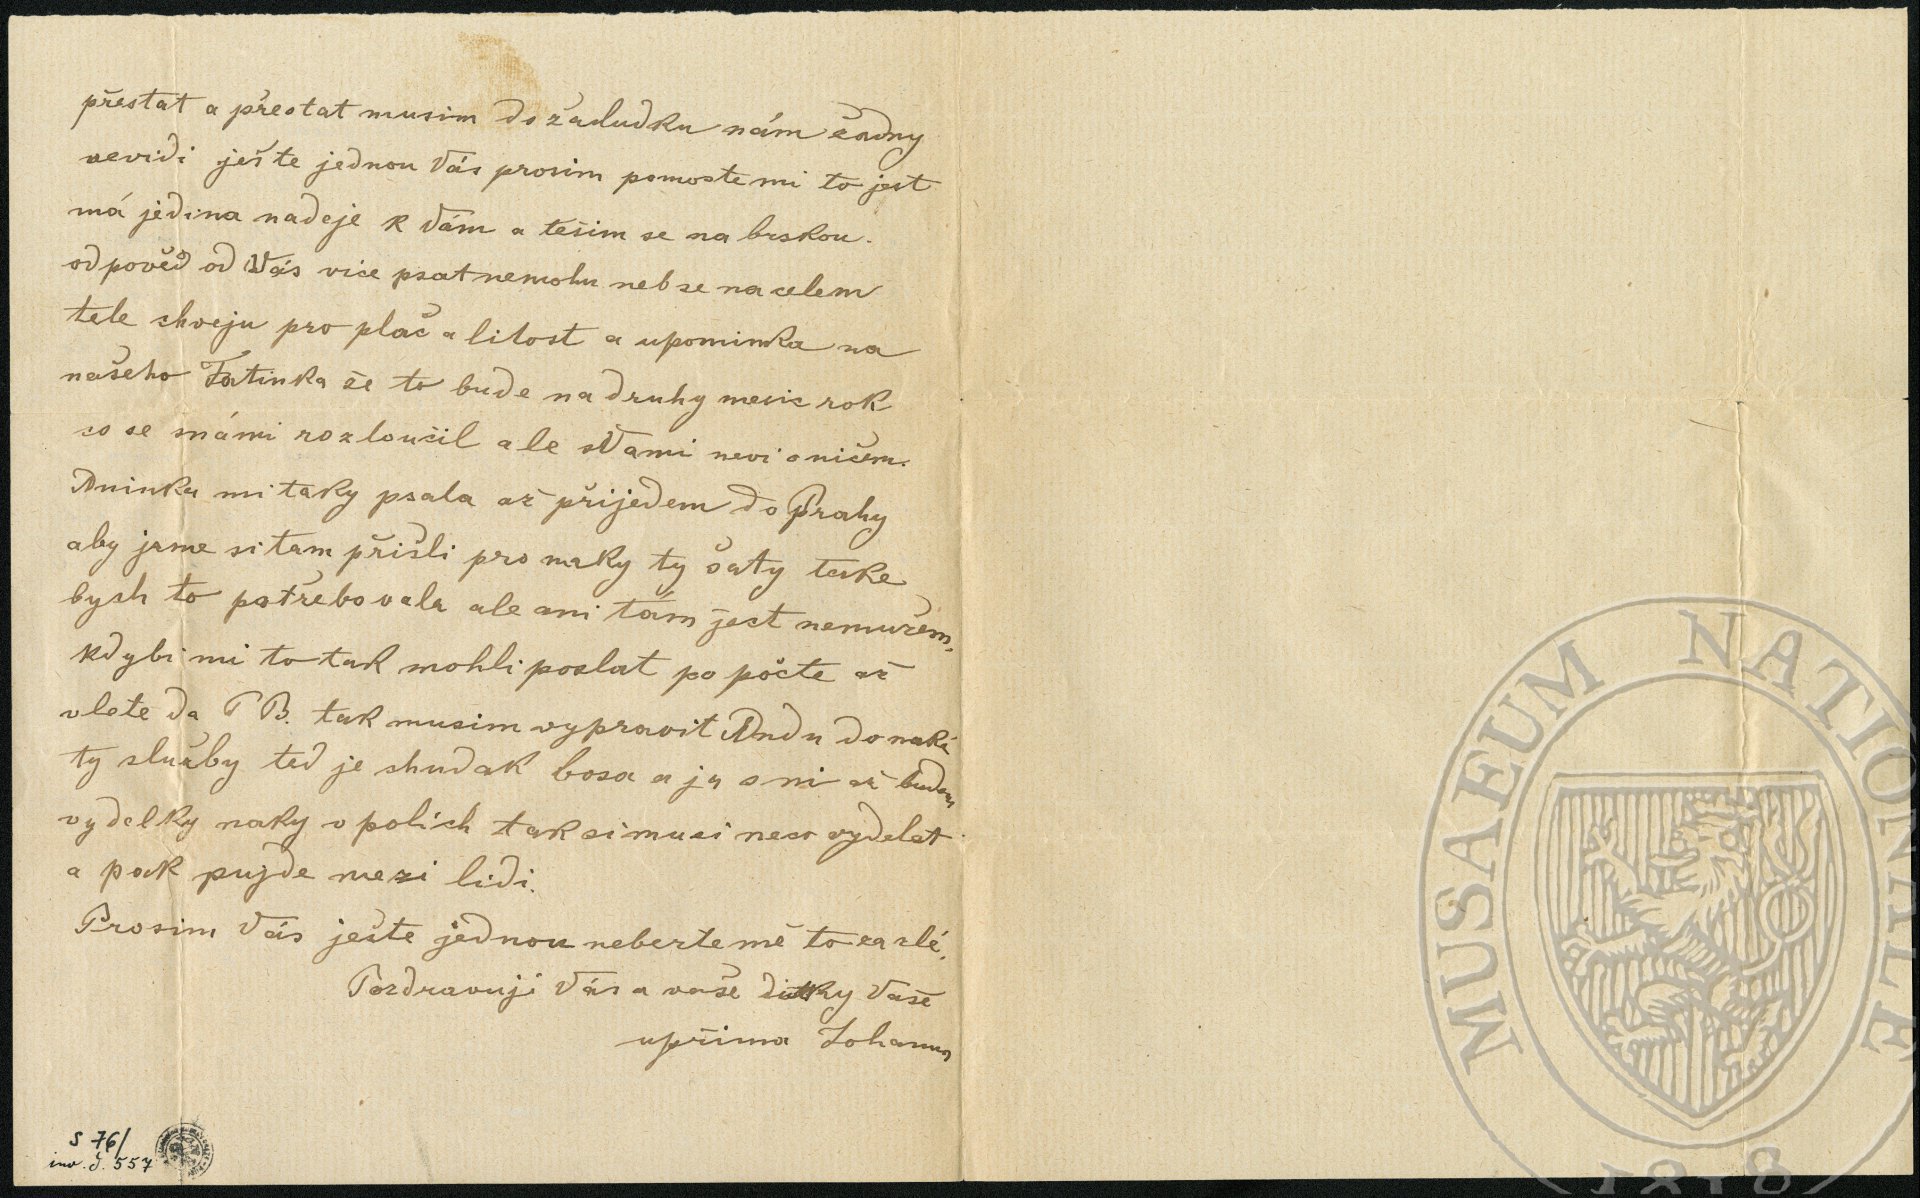 přestat a přestat musim do žaludku nám žadny
nevidi ješte jednou Vás prosim pomoste mi to jest
má jedina nadeje k Vám a tešim se na brskou.
odpověd od Vás vice psat nemohu neb se na celem
tele chveju pro plač a litost a upominka na
našeho Tatinka že to bude na druhy mesic rok
co se snámi rozloučil ale sVami nevi o ničem.
Aninka mi taky psala až přijedem do Prahy
aby jsme si tam přišli pro naky ty šaty take
bych to potřebovala ale ani tám jest nemužem,
kdybi mi to tak mohli poslat po počte až
vlete da P B. tak musim vypravit Andu do naké
ty služby ted je chudak bosa a ja s ni až budou
vydelky naky v polich tak si musi neco vydelat
a pak pujde mezi lidi.
Prosim Vás ješte jednou neberte mě to za zlé,
Pozdravuji Vás a vaše ditky Vaše
upřima Johanna
S 76/
inv. č. 557
MUSAEUM NATIONALE
1818